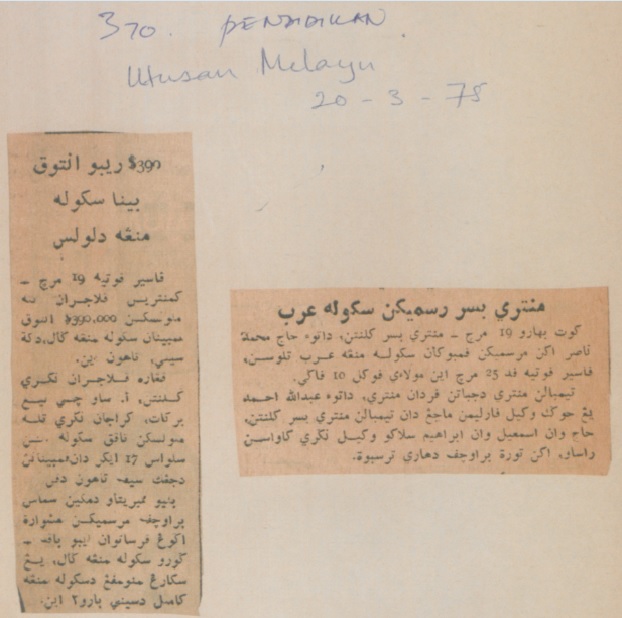 370. PENDIDIKAN.
Utusan Melayu
20 - 3 - 78
$390 ريبو اونتوق
بينا سكوله
منڠه دلولس
ڤاسير ڤوتيه 19 مرچ ــ
كمنترين ڤلاجران تله
ملولسكن $390,000 اونتوق
ممبينان سكوله منڠه ݢال، دكت
سيني، تاهون اين.
ڤڠاره ڤلاجران نݢري
كلنتن،
بركات، كراجان نݢري تله
ملولسكن تاڤق سكوله
سلواس 17 ايكر دان ڤمبينائن
دجڠك سياڤ تاهون دڤن
بليو ممبريتاو دمكين سماس
براوچڤ مرسميكن مشوارة
اݢوڠ ڤرساتوان ايبو باڤ ــ
ݢورو سكوله منڠه ݢال، يڠ
سكارڠ منومڤڠ دسكوله منڠه
كامل دسيني بارو٢ اين.
منتري بسر رسميكن سكوله عرب
كوت بهارو 19 مرچ ــ منتري بسر كلنتن، داتوء حاج محمد
ناصر اكن مرسميكن ڤمبوكان سكوله منڠه عرب تلوسن،
ڤاسير ڤوتيه ڤد 25 مرچ اين مولاءي ڤوكل 10 ڤاݢي.
تيمبالن منتري دجباتن ڤردان منتري، داتوء عبدالله احمد
يڠ جوݢ وكيل ڤارليمن ماچڠ دان تيمبالن منتري بسر كلنتن،
حاج وان اسمعيل وان ابراهيم سلاكو وكيل نݢري كاواسن
راساو، اكن توروت براوچڤ دهاري ترسبوت.